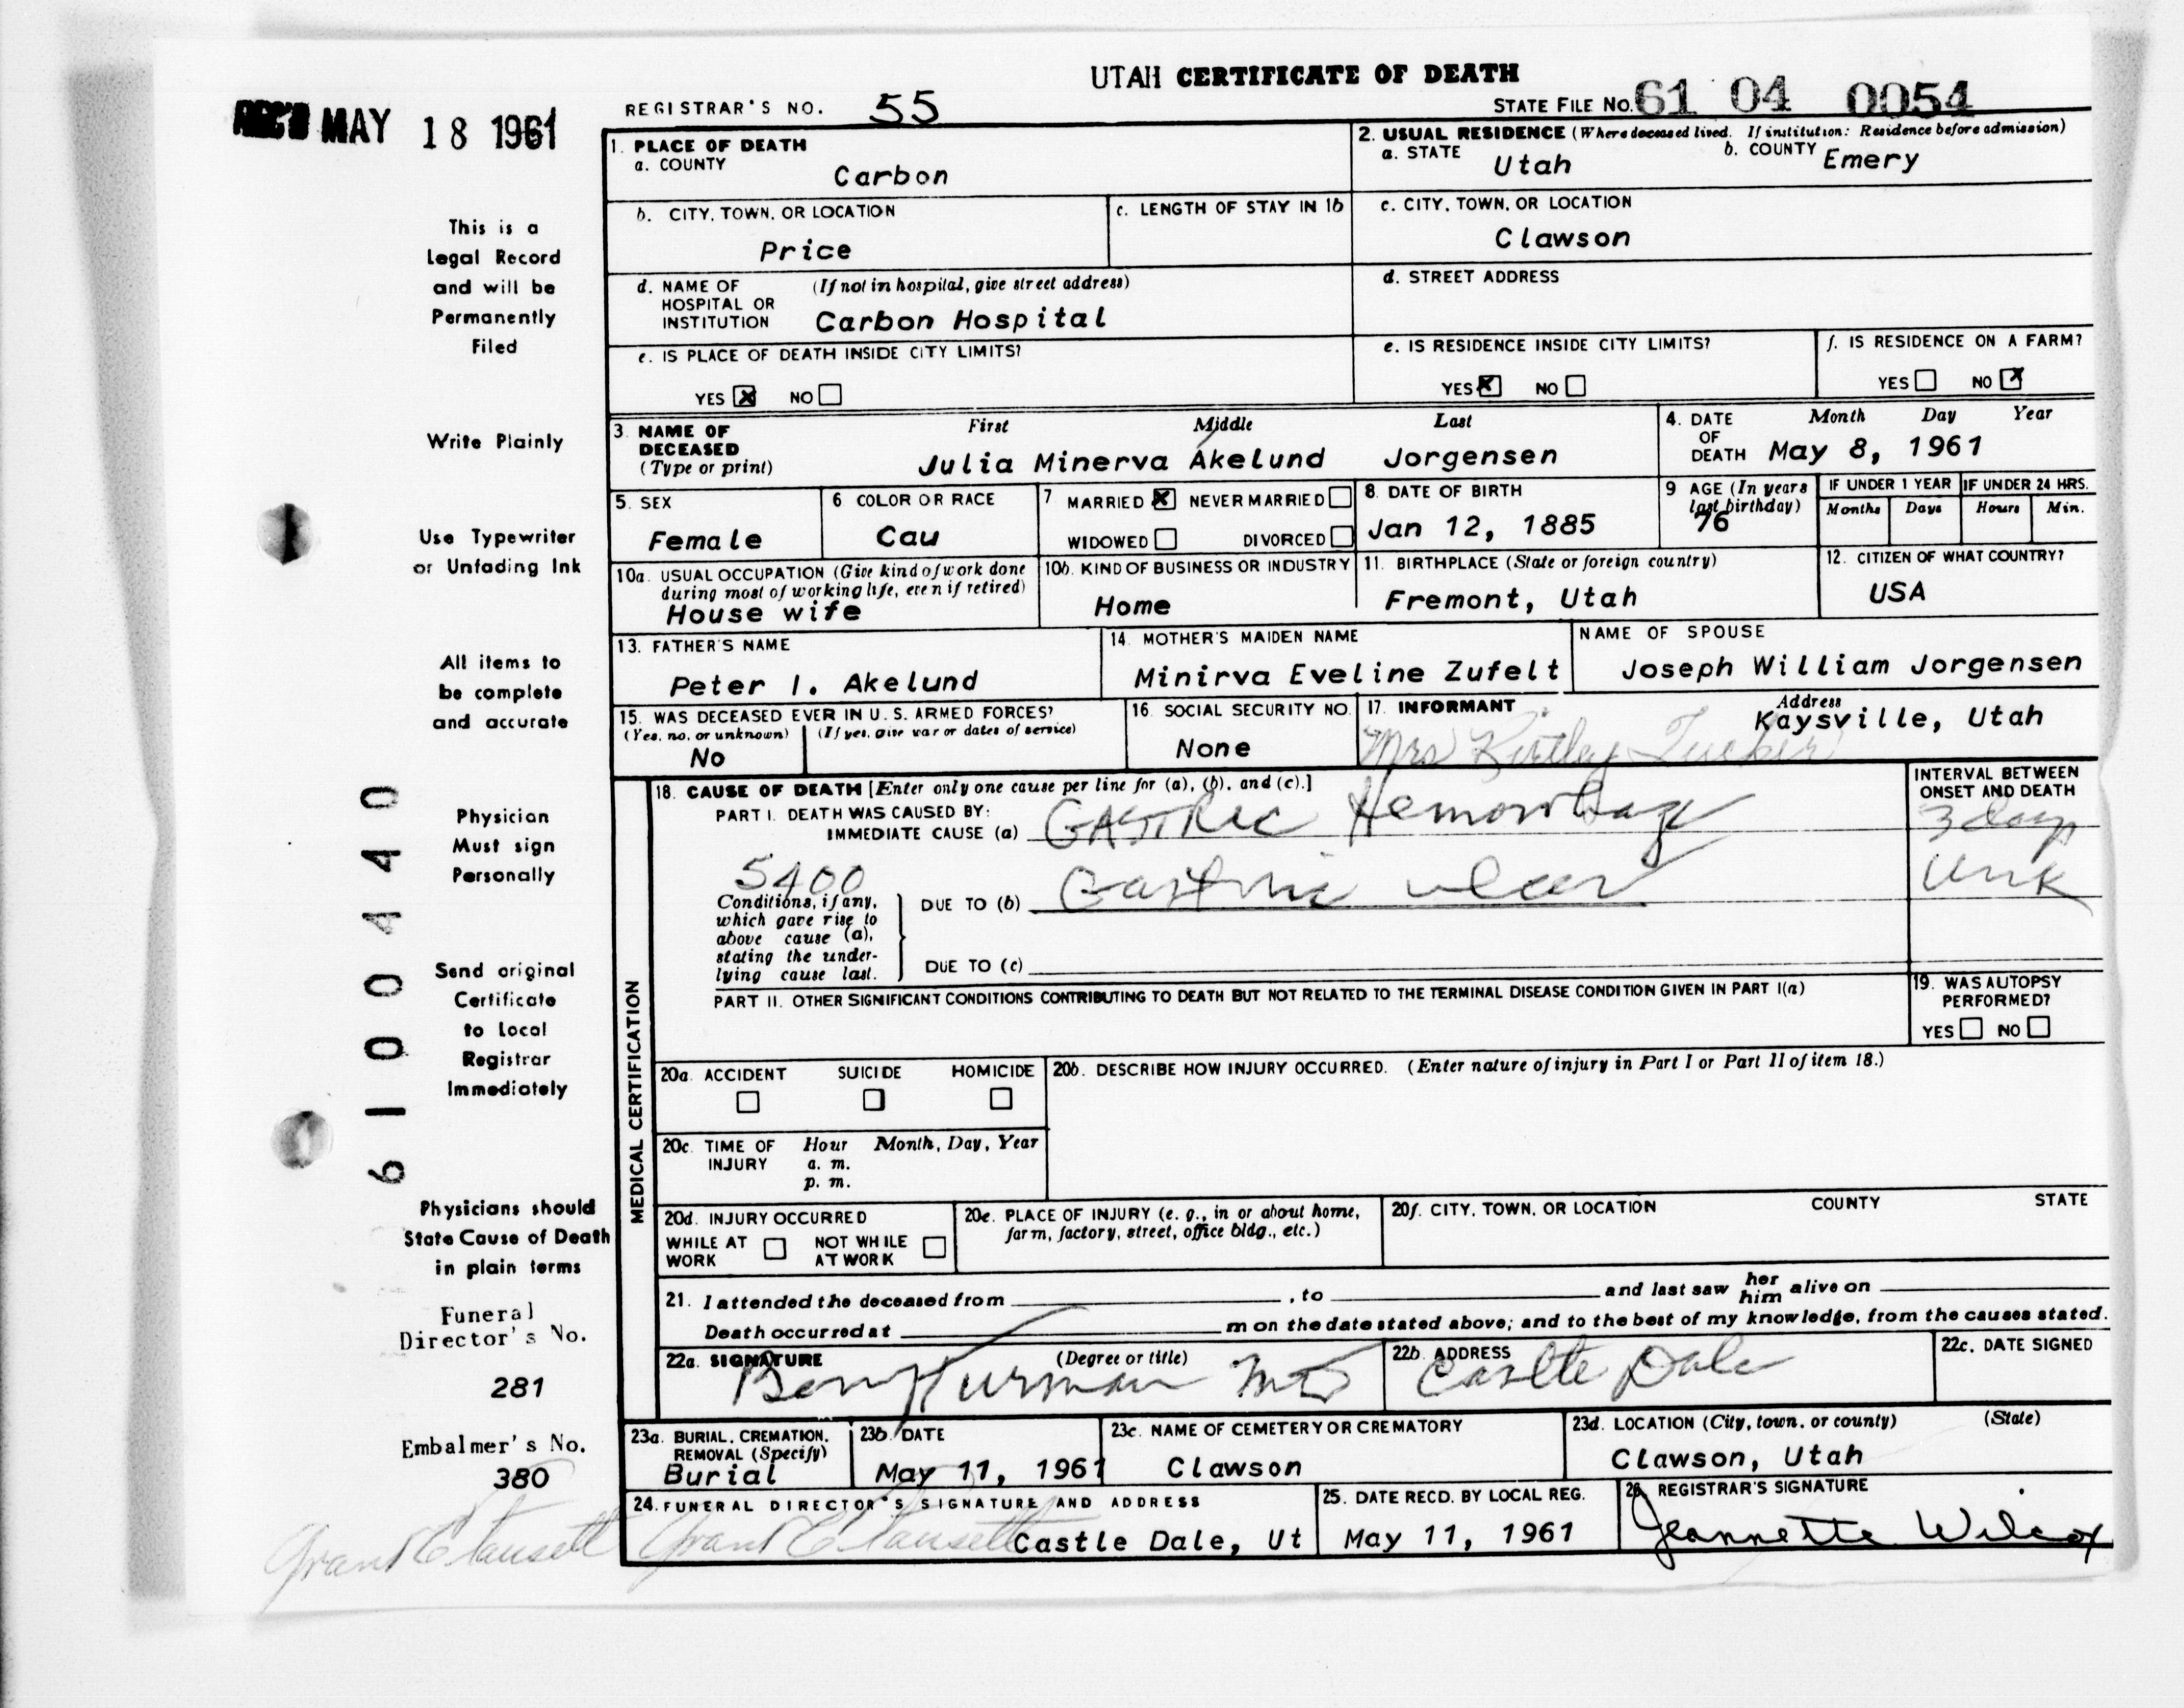 UTAH CERTIFICATE OF DEATH
REC'D MAY 18 1961
REGISTRAR'S NO. 55
STATE FILE NO. 61 04 0054
This is a
Legal Record
and will be
Permanently
Filed
Write Plainly
Use Typewriter
or Unfading Ink
All items to
be complete
and accurate
Physician
Must sign
Personally
Send original
Certificate
to Local
Registrar
Immediately
Physicians should
State Cause of Death
in plain terms
Funeral
Director's No.
281
Embalmer's No.
380
6100440
1. PLACE OF DEATH
a. COUNTY
Carbon
2. USUAL RESIDENCE (Where deceased lived. If institution: Residence before admission)
a. STATE Utah b. COUNTY Emery
b. CITY, TOWN, OR LOCATION
Price
c. LENGTH OF STAY IN 1b
c. CITY, TOWN, OR LOCATION
Clawson
d. NAME OF (If not in hospital, give street address)
HOSPITAL OR
INSTITUTION Carbon Hospital
d. STREET ADDRESS
e. IS PLACE OF DEATH INSIDE CITY LIMITS?
YES X NO
e. IS RESIDENCE INSIDE CITY LIMITS?
YES X NO
f. IS RESIDENCE ON A FARM?
YES NO X
3. NAME OF DECEASED
(Type or print)
First Middle Last
Julia Minerva Akelund Jorgensen
4. DATE OF DEATH
Month Day Year
May 8, 1961
5. SEX
Female
6 COLOR OR RACE
Cau
7 MARRIED X NEVER MARRIED
WIDOWED DIVORCED
8. DATE OF BIRTH
Jan 12, 1885
9 AGE (In years
last birthday)
76
IF UNDER 1 YEAR IF UNDER 24 HRS.
Months Days Hours Min.
10a. USUAL OCCUPATION (Give kind of work done
during most of working life, even if retired)
House wife
10b. KIND OF BUSINESS OR INDUSTRY
Home
11. BIRTHPLACE (State or foreign country)
Fremont, Utah
12. CITIZEN OF WHAT COUNTRY?
USA
13. FATHER'S NAME
Peter I. Akelund
14. MOTHER'S MAIDEN NAME
Minirva Eveline Zufelt
NAME OF SPOUSE
Joseph William Jorgensen
15. WAS DECEASED EVER IN U.S. ARMED FORCES?
(Yes, no, or unknown) (If yes, give war or dates of service)
No
16. SOCIAL SECURITY NO.
None
17. INFORMANT Address
Kaysville, Utah
Mrs Kirtley Tucker
MEDICAL CERTIFICATION
18. CAUSE OF DEATH [Enter only one cause per line for (a), (b), and (c).]
PART I. DEATH WAS CAUSED BY:
IMMEDIATE CAUSE (a) Gastric Hemorrhage
INTERVAL BETWEEN
ONSET AND DEATH
3 days
5400
Conditions, if any,
which gave rise to
above cause (a),
stating the under-
lying cause last.
DUE TO (b) Gastric ulcer
Unk
DUE TO (c)
PART II. OTHER SIGNIFICANT CONDITIONS CONTRIBUTING TO DEATH BUT NOT RELATED TO THE TERMINAL DISEASE CONDITION GIVEN IN PART I(a)
19. WAS AUTOPSY
PERFORMED?
YES NO
20a. ACCIDENT SUICIDE HOMICIDE
20b. DESCRIBE HOW INJURY OCCURRED. (Enter nature of injury in Part I or Part II of item 18.)
20c. TIME OF INJURY
Hour Month, Day, Year
a. m.
p. m.
20d. INJURY OCCURRED
WHILE AT WORK NOT WHILE AT WORK
20e. PLACE OF INJURY (e. g., in or about home,
farm, factory, street, office bldg., etc.)
20f. CITY, TOWN, OR LOCATION COUNTY STATE
21. I attended the deceased from , to and last saw her him alive on
Death occurred at m on the date stated above; and to the best of my knowledge, from the causes stated.
22a. SIGNATURE (Degree or title)
MD
22b. ADDRESS
Castle Dale
22c. DATE SIGNED
23a. BURIAL, CREMATION,
REMOVAL (Specify)
Burial
23b. DATE
May 11, 1961
23c. NAME OF CEMETERY OR CREMATORY
Clawson
23d. LOCATION (City, town, or county) (State)
Clawson, Utah
24. FUNERAL DIRECTOR'S SIGNATURE AND ADDRESS
Castle Dale, Ut
25. DATE RECD. BY LOCAL REG.
May 11, 1961
26. REGISTRAR'S SIGNATURE
Jeannette Wilcox